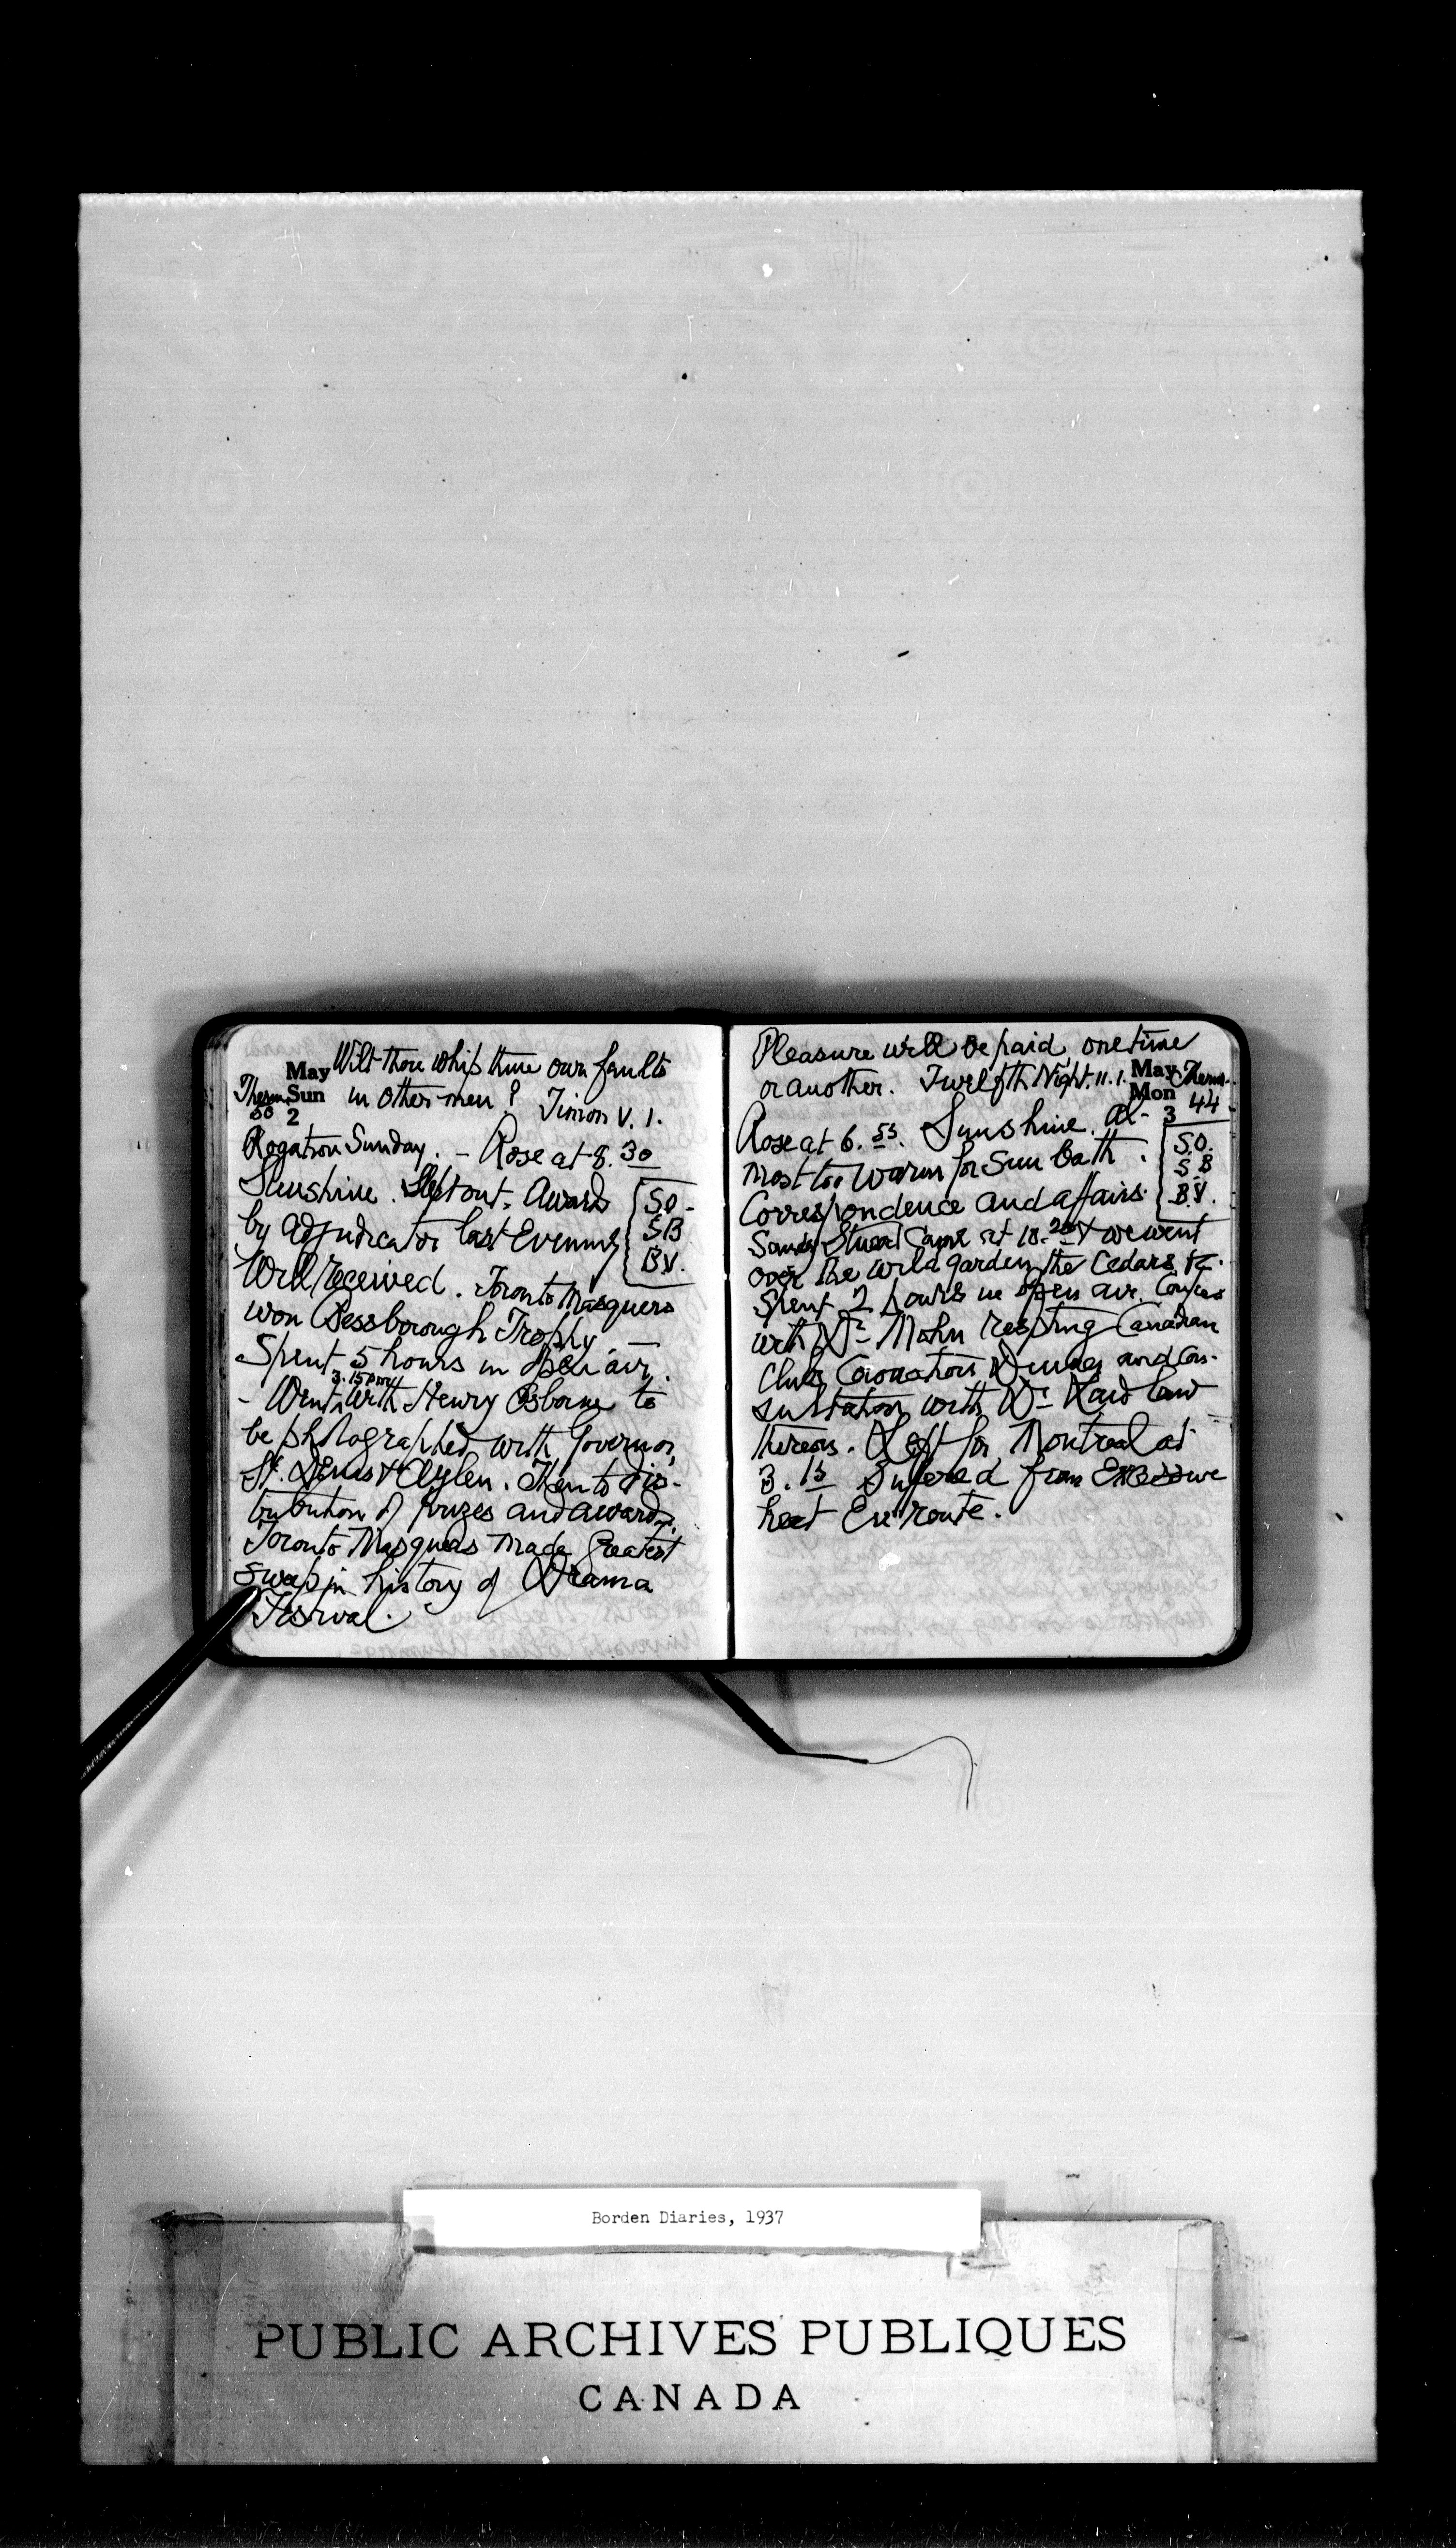 Wilt thou whip thine own faults
May
Therm. Sun in other men? Timon V. 1.
50 2
Rogation Sunday. - Rose at 8.30
Sunshine. Slept out. Awards
S.O.
S B
B.V.
by adjudicator last Evening
Well received. Toronto Masquers
won Bessborough Trophy. —
Spent 5 hours in open air.
3.15 pm
- Went with Henry Osborne to
be photographed with Governor,
St. Denis & Aylen. Then to dis-
tribution of prizes and awards.
Toronto Masquers made greatest
sweep in history of Drama
Festival.
Pleasure will be paid, one time
or another. Twelfth Night. 11. 1. May Therm.
Mon
3 44
Rose at 6.55. Sunshine. Al-
most too warm for Sun bath.
S.O.
S B
B.V.
Correspondence and affairs.
Stuart came at 10.20 & we went
over the wild garden, the Cedars, &c.
Spent 2 hours in open air.
with respecting Canadian
Club Coronation Dinner and con-
sultation with Dr. Laidlaw
thereon. Left for Montreal at
3.15 Suffered from Excessive
heat En route.
Borden Diaries, 1937
PUBLIC ARCHIVES PUBLIQUES
CANADA